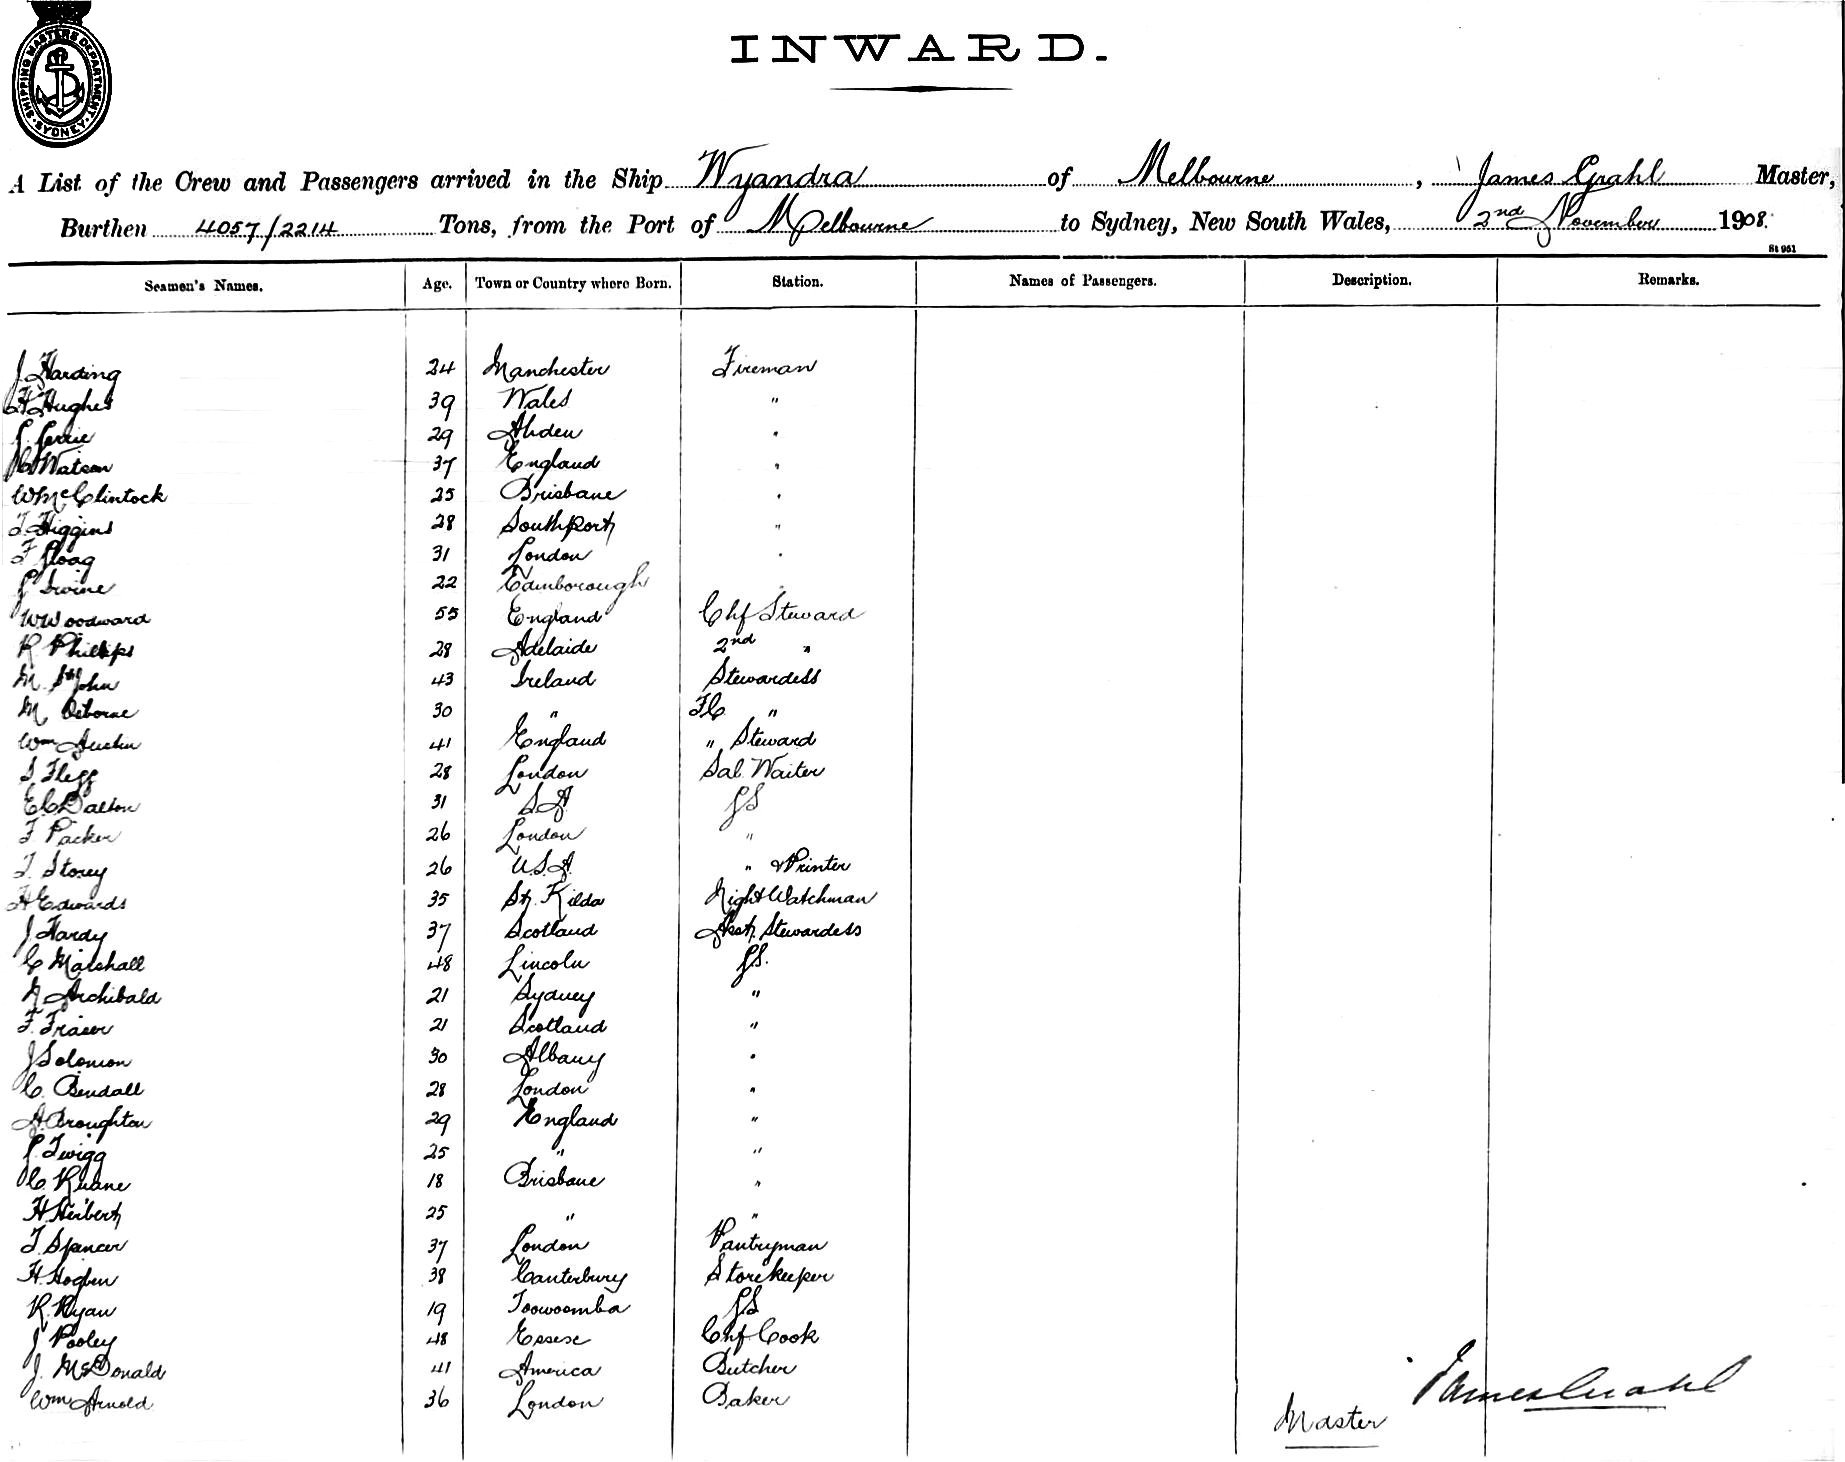 SHIPPING MASTERS DEPARTMENT
SYDNEY
INWARD.
A List of the Crew and Passengers arrived in the Ship Wyandra of Melbourne, James Grahl Master,
Burthen 4057/2214 Tons, from the Port of Melbourne to Sydney, New South Wales, 2nd November 1908.
St 951
Seamen's Names. Age. Town or Country where Born. Station. Names of Passengers. Description. Remarks.
J. Harding 24 Manchester Fireman
H Hughes 39 Wales "
29 "
Watson 37 England "
W McClintock 25 Brisbane "
T. Higgins 28 Southport "
F 31 London "
J Irvine 22 Edinborough "
W Woodward 55 England Chf Steward
R Phillips 28 Adelaide 2nd "
M. St John 43 Ireland Stewardess
M Osborne 30 " FC "
Wm Austin 41 England " Steward
S Flegg 28 London Sal. Waiter
E C Dalton 31 S.A. GS
F Packer 26 London "
T. Storey 26 U.S.A. " & Printer
H Edwards 35 St. Kilda Night Watchman
J Hardy 37 Scotland Asst. Stewardess
C Marshall 48 Lincoln GS.
A Archibald 21 Sydney "
F. Fraser 21 Scotland "
J Solomon 30 Albany "
C. Bendall 28 London "
A. Broughton 29 England "
P. Twigg 25 " "
C Ruane 18 Brisbane "
H. Herbert 25 " "
T. Spencer 37 London Pantryman
H. Hogben 38 Canterbury Storekeeper
R. Ryan 19 Toowoomba GS
J Pooley 48 Essex Chf Cook
J. McDonald 41 America Butcher
Wm Arnold 36 London Baker
James Grahl
Master